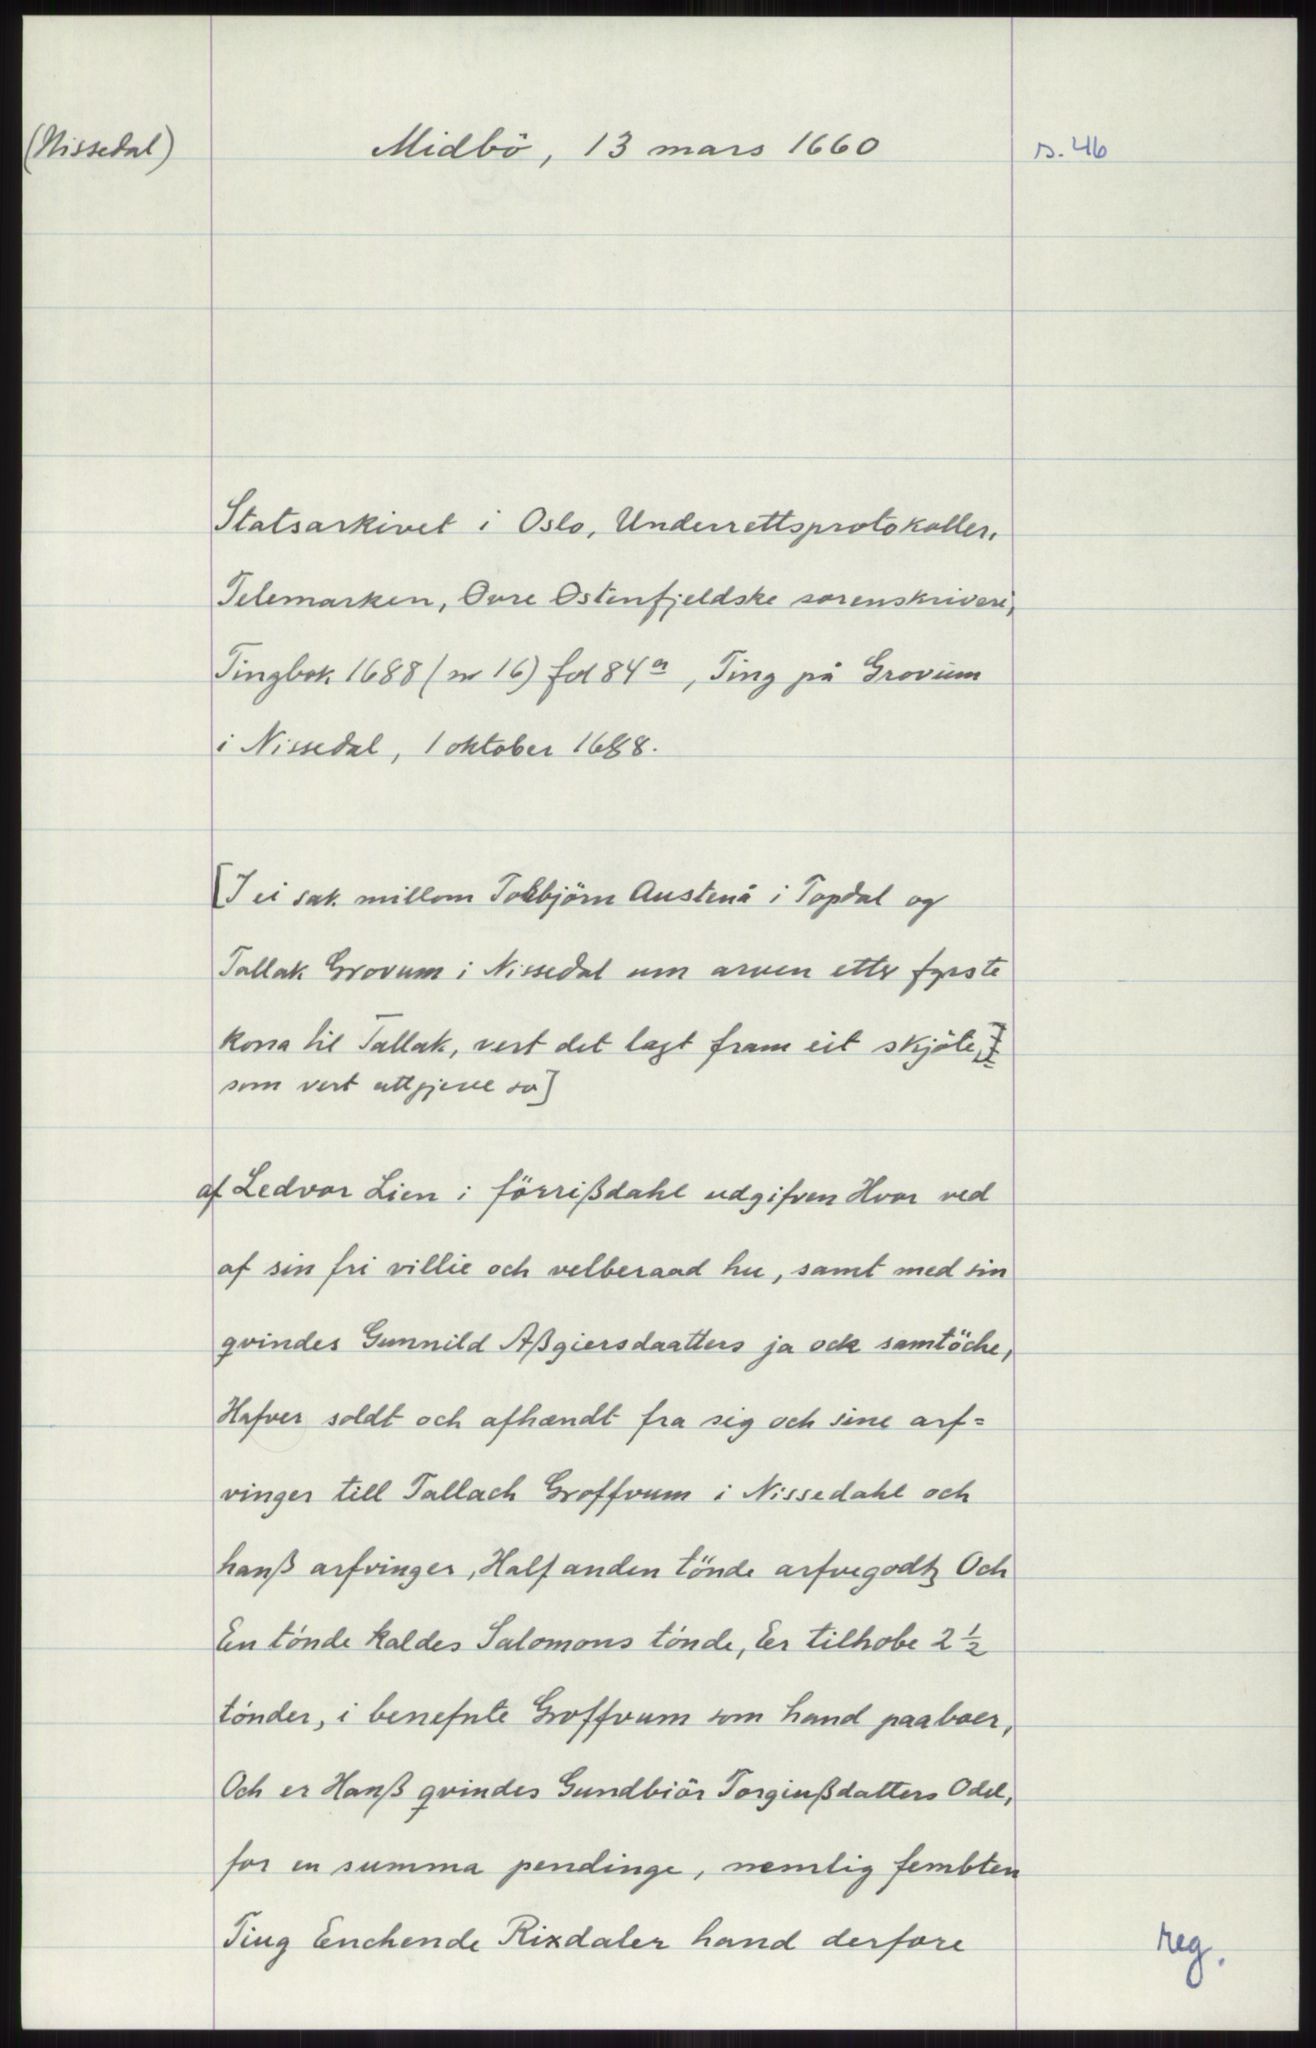 (Nissedal) Midbö, 13 mars 1660 s. 46
Statsarkivet i Oslo, Underrettsprotokoller,
Telemarken, Øvre Østenfjeldske sorenskriveri,
Tingbok 1688 (nr 16) fol 84ᵃ, Ting på Grovum
i Nissedal, 1 oktober 1688.
[I ei sak millom Tolbjörn Austenå i Topdal og
Tallak Grovum i Nissedal um arven etter fyrste
kona til Tallak, vert det lagt fram eit skjöte,
som vert attgjeve so]
af Ledvor Lien i förrißdahl udgifven Hvor ved
af sin fri villie och velberaad hu, samt med sin
qvindes Gunnild Aßgiersdaatters ja ock samtöche,
Hafver soldt och afhændt fra sig och sine arf=
vinger till Tallach Groffvum i Nissedahl och
hanß arfvinger, Half anden tönde arfvegodtz Och
En tónde kaldes Salomons tónde, Er tilhobe 2½
tónder, i benefnte Groffvum som hand paaboer,
Och er Hanß qvindes Gundbiör Torgiußdatters Odel,
for en summa pendinge, nemlig fembten
Tiug Enchende Rixdaler hand derfore
reg.